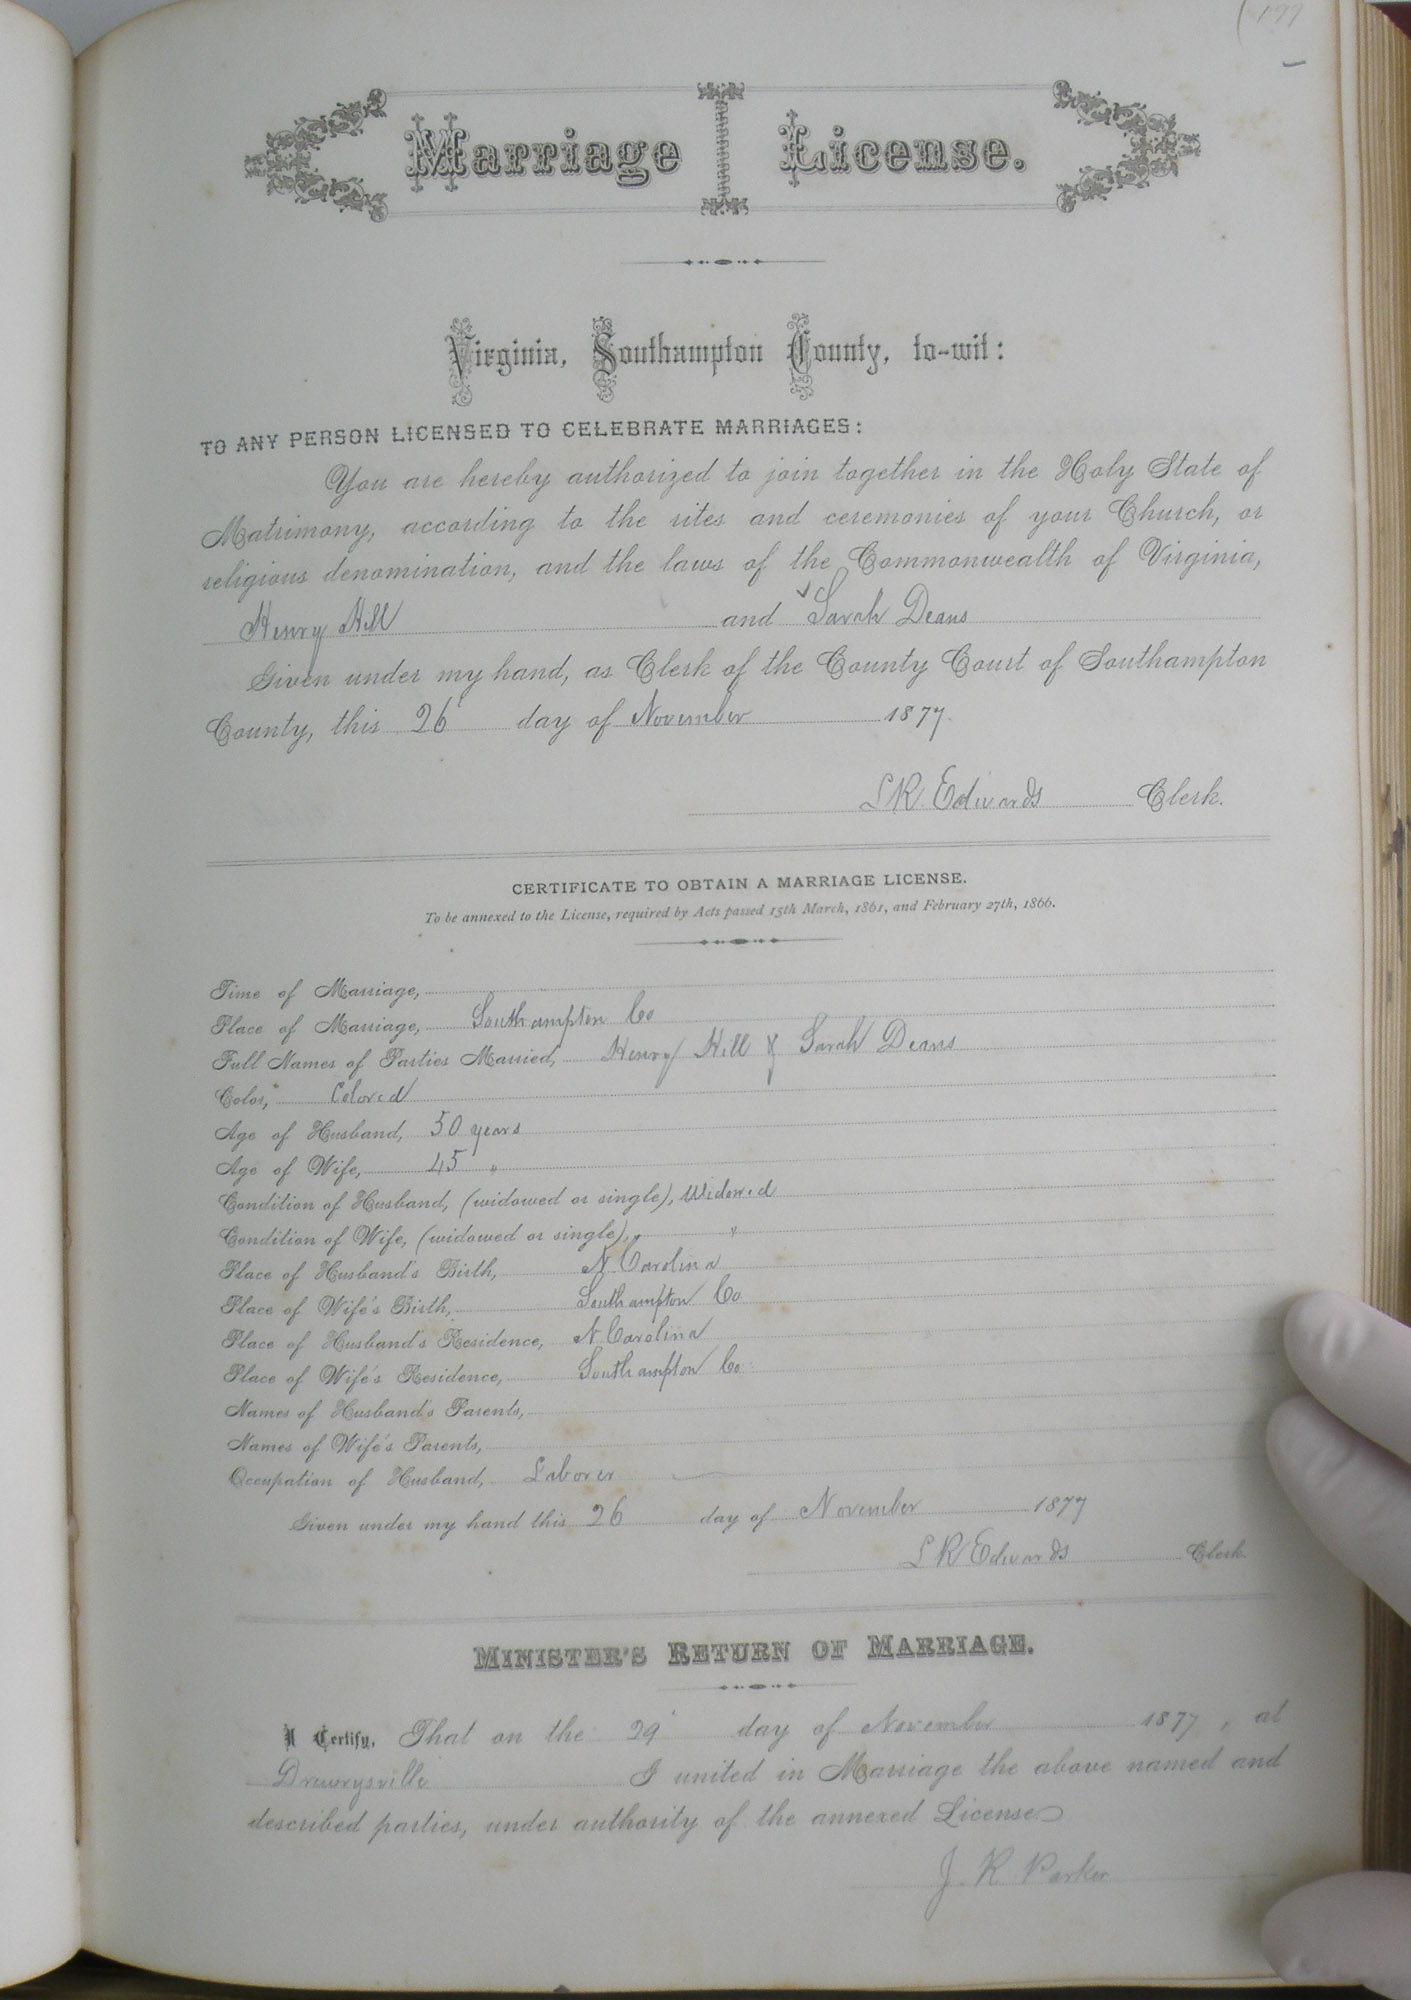 199
Marriage License.
Virginia, Southampton County, to-wit:
TO ANY PERSON LICENSED TO CELEBRATE MARRIAGES:
You are hereby authorized to join together in the Holy State of
Matrimony, according to the rites and ceremonies of your Church, or
religious denomination, and the laws of the Commonwealth of Virginia,
Henry Hill and Sarah Deans
Given under my hand, as Clerk of the County Court of Southampton
County, this 26 day of November 1877.
L R Edwards Clerk.
CERTIFICATE TO OBTAIN A MARRIAGE LICENSE.
To be annexed to the License, required by Acts passed 15th March, 1861, and February 27th, 1866.
Time of Marriage,
Place of Marriage, Southampton Co
Full Names of Parties Married, Henry Hill & Sarah Deans
Color, Colored
Age of Husband, 50 years
Age of Wife, 45 "
Condition of Husband, (widowed or single), Widowed
Condition of Wife, (widowed or single), "
Place of Husband's Birth, N Carolina
Place of Wife's Birth, Southampton Co
Place of Husband's Residence, N Carolina
Place of Wife's Residence, Southampton Co
Names of Husband's Parents,
Names of Wife's Parents,
Occupation of Husband, Laborer
Given under my hand this 26 day of November 1877
L R Edwards Clerk.
MINISTER'S RETURN OF MARRIAGE.
I Certify, That on the 29 day of November 1877, at
Drewrysville I united in Marriage the above named and
described parties, under authority of the annexed License
J. R Parker